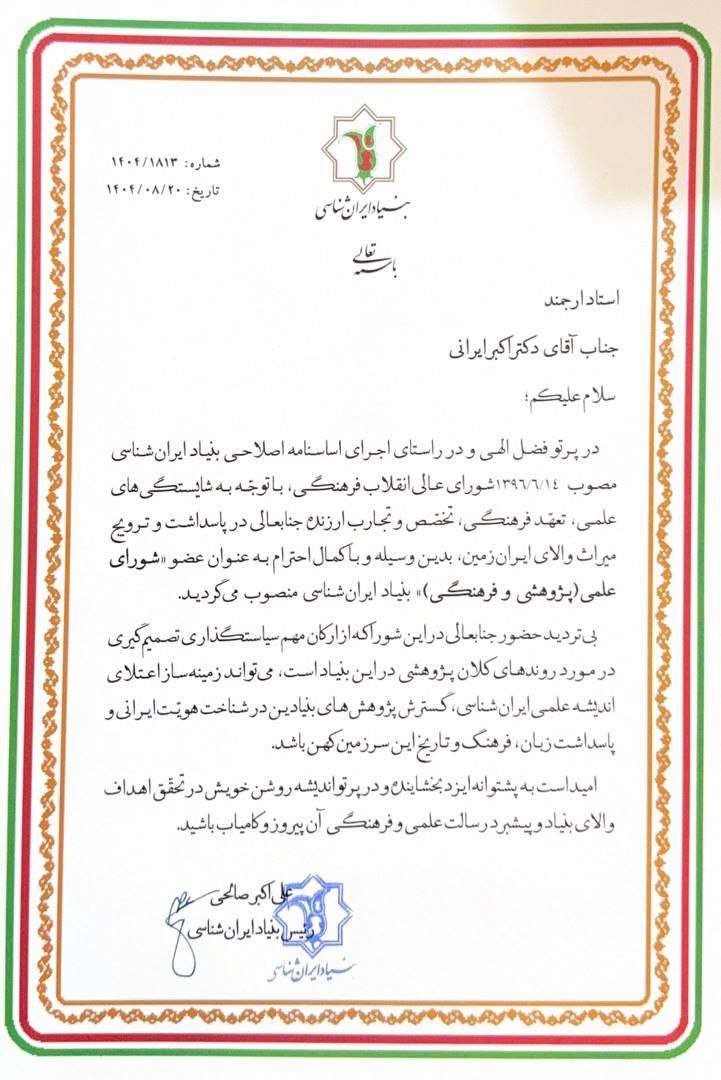 شماره: ۱۴۰۴/۱۸۱۳
تاریخ: ۱۴۰۴/۰۸/۲۰
بنیاد ایران‌شناسی
باسمه تعالی
استاد ارجمند
جناب آقای دکتر اکبر ایرانی
سلام علیکم؛
در پرتو فضل الهی و در راستای اجرای اساسنامه اصلاحی بنیاد ایران‌شناسی
مصوب ۱۳۹۶/۶/۱۴ شورای عالی انقلاب فرهنگی، با توجّه به شایستگی‌های
علمی، تعهّد فرهنگی، تخصّص و تجارب ارزنده جنابعالی در پاسداشت و ترویج
میراث والای ایران زمین، بدین وسیله و با کمال احترام به عنوان عضو «شورای
علمی (پژوهشی و فرهنگی)» بنیاد ایران‌شناسی منصوب می‌گردید.
بی‌تردید حضور جنابعالی در این شورا که از ارکان مهم سیاستگذاری تصمیم‌گیری
در مورد روندهای کلان پژوهشی در این بنیاد است، می‌تواند زمینه‌ساز اعتلای
اندیشه علمی ایران‌شناسی، گسترش پژوهش‌های بنیادین در شناخت هویّت ایرانی و
پاسداشت زبان، فرهنگ و تاریخ این سرزمین کهن باشد.
امید است به پشتوانه ایزد بخشاینده و در پرتو اندیشه روشن خویش در تحقّق اهداف
والای بنیاد و پیشبرد رسالت علمی و فرهنگی آن پیروز و کامیاب باشید.
علی اکبر صالحی
رئیس بنیاد ایران‌شناسی
بنیاد ایران‌شناسی